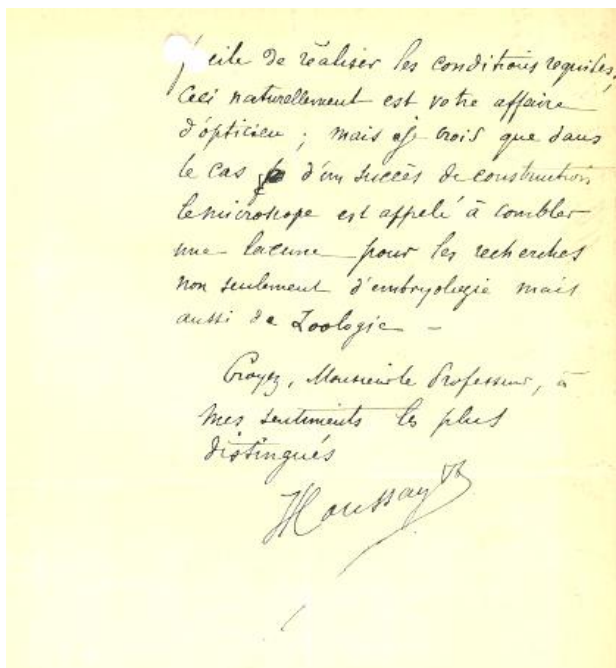 facile de réaliser les conditions requises,
Ceci naturellement est votre affaire
d'opticien ; mais je crois que dans
le cas d'un succès de construction
le microscope est appelé à combler
une lacune pour les recherches
non seulement d'embryologie mais
aussi de Zoologie –
Croyez, Monsieur le Professeur, à
mes sentiments les plus
distingués
Houssay